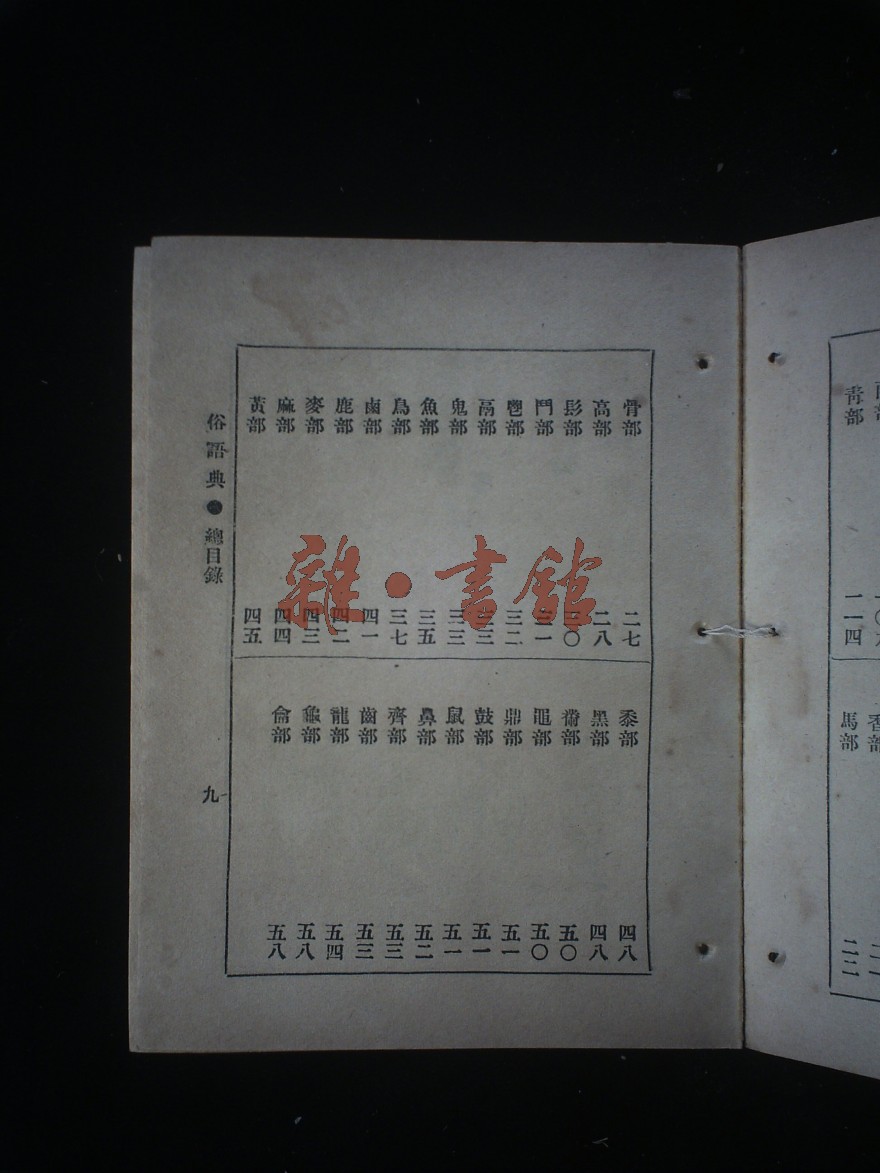 青部 一一四
馬部 二二
骨部 二七
高部 二八
髟部 三〇
鬥部 三一
鬯部 三二
鬲部 三三
鬼部 三三
魚部 三五
鳥部 三七
鹵部 四一
鹿部 四二
麥部 四三
麻部 四四
黃部 四五
黍部 四八
黑部 四八
黹部 五〇
黽部 五〇
鼎部 五一
鼓部 五一
鼠部 五一
鼻部 五二
齊部 五三
齒部 五三
龍部 五四
龜部 五八
龠部 五八
俗語典 總目錄 九
雜·書館